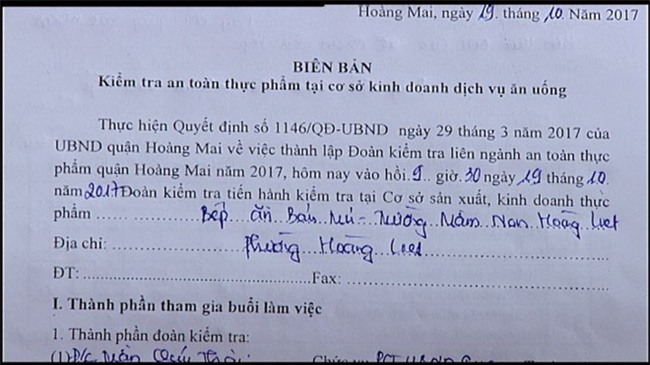 Hoàng Mai, ngày 19. tháng 10. Năm 2017
BIÊN BẢN
Kiểm tra an toàn thực phẩm tại cơ sở kinh doanh dịch vụ ăn uống
Thực hiện Quyết định số 1146/QĐ-UBND ngày 29 tháng 3 năm 2017 của
UBND quận Hoàng Mai về việc thành lập Đoàn kiểm tra liên ngành an toàn thực
phẩm quận Hoàng Mai năm 2017, hôm nay vào hồi 9.. giờ. 30 ngày 19 tháng 10.
năm 2017 Đoàn kiểm tra tiến hành kiểm tra tại Cơ sở sản xuất, kinh doanh thực
phẩm ..... Bếp ăn Bán trú - Trường Mầm Non Hoàng Liệt
Địa chỉ: ..... Phường Hoàng Liệt
ĐT: ..... Fax: .....
I. Thành phần tham gia buổi làm việc
1. Thành phần đoàn kiểm tra:
(1) Đ/c Trần Chức vụ PCT UBND